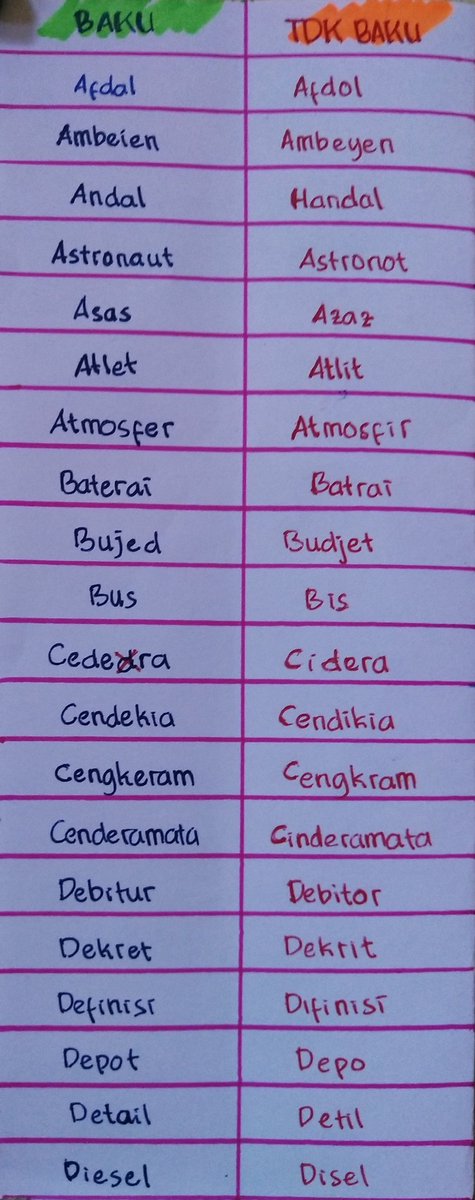 BAKU TDK BAKU
Afdal Afdol
Ambeien Ambeyen
Andal Handal
Astronaut Astronot
Asas Azaz
Atlet Atlit
Atmosfer Atmosfir
Baterai Batrai
Bujed Budjet
Bus Bis
Cedera Cidera
Cendekia Cendikia
Cengkeram Cengkram
Cenderamata Cinderamata
Debitur Debitor
Dekret Dekrit
Definisi Difinisi
Depot Depo
Detail Detil
Diesel Disel